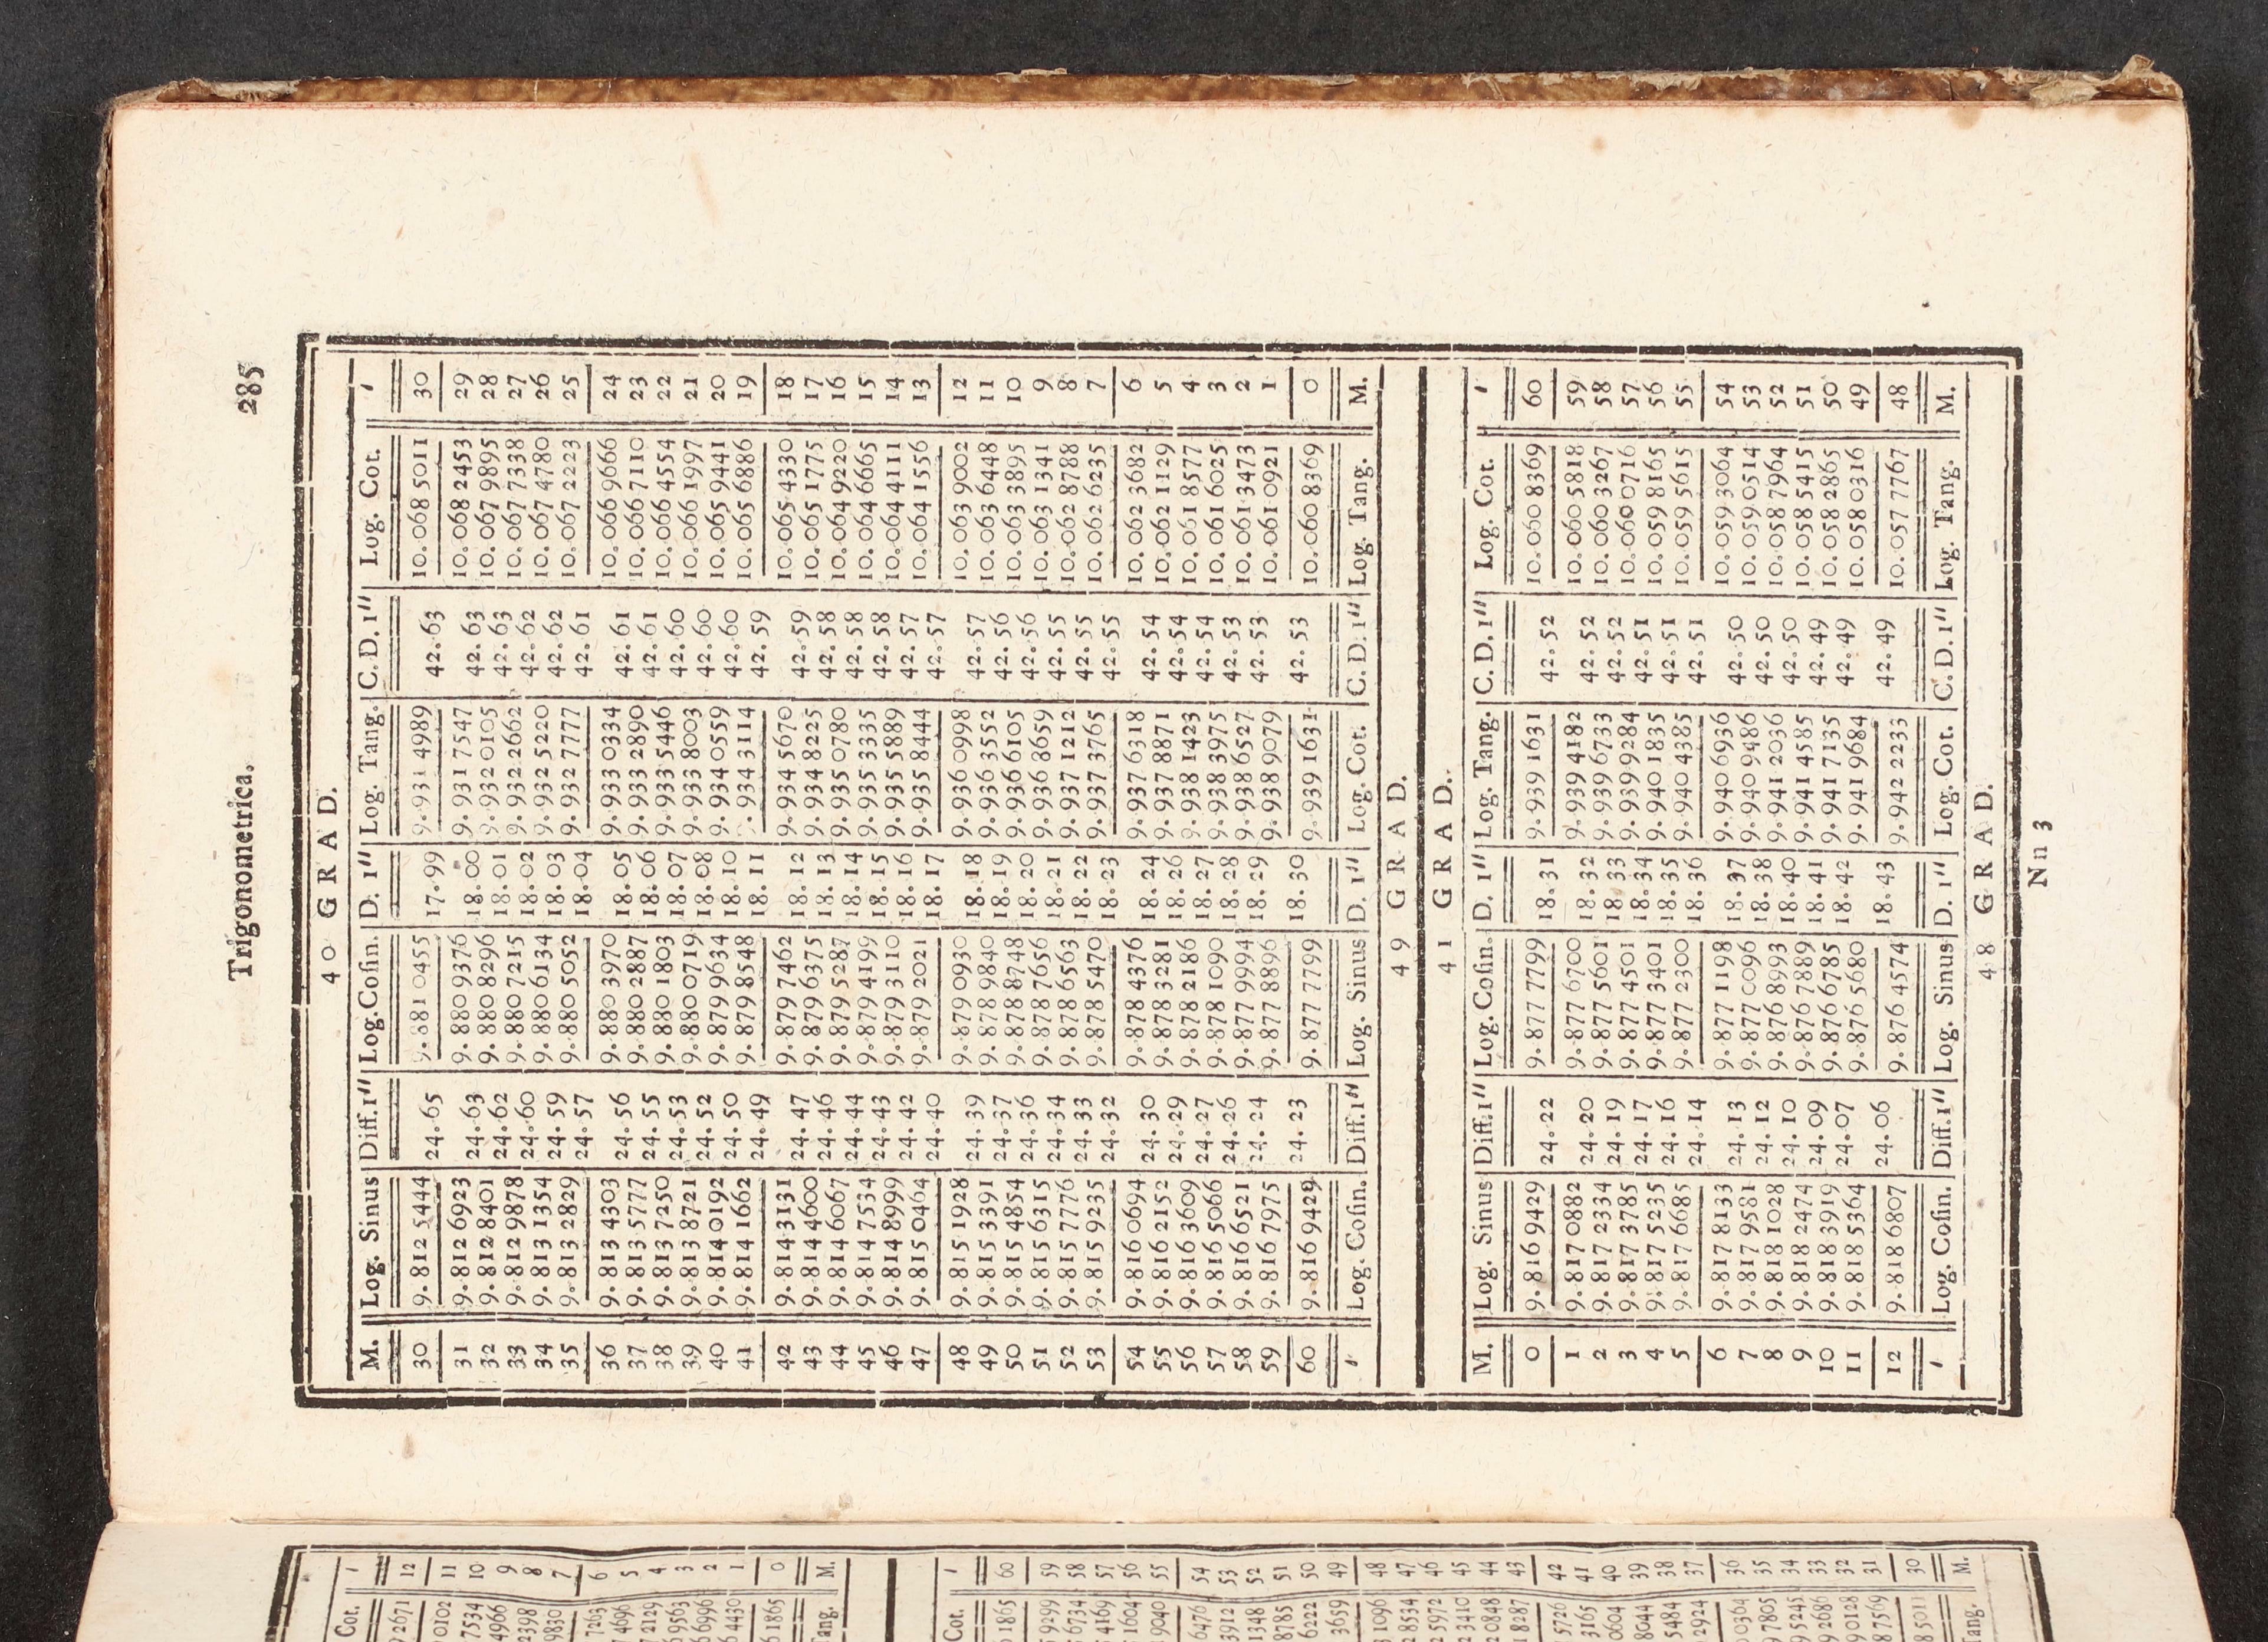 Trigonometrica. 285
40 GRAD.
M. Log. Sinus Diff.1" Log.Cosin. D. 1" Log. Tang. C. D. 1" Log. Cot. '
30 9. 812 5444 24. 65 9. 881 0455 17. 99 9. 931 4989 42. 63 10. 068 5011 30
31 9. 812 6923 24. 63 9. 880 9376 18. 00 9. 931 7547 42. 63 10. 068 2453 29
32 9. 812 8401 24. 62 9. 880 8296 18. 01 9. 932 0105 42. 63 10. 067 9895 28
33 9. 812 9878 24. 60 9. 880 7215 18. 02 9. 932 2662 42. 62 10. 067 7338 27
34 9. 813 1354 24. 59 9. 880 6134 18. 03 9. 932 5220 42. 62 10. 067 4780 26
35 9. 813 2829 24. 57 9. 880 5052 18. 04 9. 932 7777 42. 61 10. 067 2223 25
36 9. 813 4303 24. 56 9. 880 3970 18. 05 9. 933 0334 42. 61 10. 066 9666 24
37 9. 813 5777 24. 55 9. 880 2887 18. 06 9. 933 2890 42. 61 10. 066 7110 23
38 9. 813 7250 24. 53 9. 880 1803 18. 07 9. 933 5446 42. 60 10. 066 4554 22
39 9. 813 8721 24. 52 9. 880 0719 18. 08 9. 933 8003 42. 60 10. 066 1997 21
40 9. 814 0192 24. 50 9. 879 9634 18. 10 9. 934 0559 42. 60 10. 065 9441 20
41 9. 814 1662 24. 49 9. 879 8548 18. 11 9. 934 3114 42. 59 10. 065 6886 19
42 9. 814 3131 24. 47 9. 879 7462 18. 12 9. 934 5670 42. 59 10. 065 4330 18
43 9. 814 4600 24. 46 9. 879 6375 18. 13 9. 934 8225 42. 58 10. 065 1775 17
44 9. 814 6067 24. 44 9. 879 5287 18. 14 9. 935 0780 42. 58 10. 064 9220 16
45 9. 814 7534 24. 43 9. 879 4199 18. 15 9. 935 3335 42. 58 10. 064 6665 15
46 9. 814 8999 24. 42 9. 879 3110 18. 16 9. 935 5889 42. 57 10. 064 4111 14
47 9. 815 0464 24. 40 9. 879 2021 18. 17 9. 935 8444 42. 57 10. 064 1556 13
48 9. 815 1928 24. 39 9. 879 0930 18. 18 9. 936 0998 42. 57 10. 063 9002 12
49 9. 815 3391 24. 37 9. 878 9840 18. 19 9. 936 3552 42. 56 10. 063 6448 11
50 9. 815 4854 24. 36 9. 878 8748 18. 20 9. 936 6105 42. 56 10. 063 3895 10
51 9. 815 6315 24. 34 9. 878 7656 18. 21 9. 936 8659 42. 55 10. 063 1341 9
52 9. 815 7776 24. 33 9. 878 6563 18. 22 9. 937 1212 42. 55 10. 062 8788 8
53 9. 815 9235 24. 32 9. 878 5470 18. 23 9. 937 3765 42. 55 10. 062 6235 7
54 9. 816 0694 24. 30 9. 878 4376 18. 24 9. 937 6318 42. 54 10. 062 3682 6
55 9. 816 2152 24. 29 9. 878 3281 18. 26 9. 937 8871 42. 54 10. 062 1129 5
56 9. 816 3609 24. 27 9. 878 2186 18. 27 9. 938 1423 42. 54 10. 061 8577 4
57 9. 816 5066 24. 26 9. 878 1090 18. 28 9. 938 3975 42. 53 10. 061 6025 3
58 9. 816 6521 24. 24 9. 877 9994 18. 29 9. 938 6527 42. 53 10. 061 3473 2
59 9. 816 7975 9. 877 8896 9. 938 9079 10. 061 0921 1
60 9. 816 9429 24. 23 9. 877 7799 18. 30 9. 939 1631 42. 53 10. 060 8369 0
' Log. Cosin. Diff.1" Log. Sinus D. 1" Log. Cot. C. D. 1" Log. Tang. M.
49 GRAD.
41 GRAD.
M. Log. Sinus Diff.1" Log.Cosin. D. 1" Log. Tang. C. D. 1" Log. Cot. '
0 9. 816 9429 24. 22 9. 877 7799 18. 31 9. 939 1631 42. 52 10. 060 8369 60
1 9. 817 0882 24. 20 9. 877 6700 18. 32 9. 939 4182 42. 52 10. 060 5818 59
2 9. 817 2334 24. 19 9. 877 5601 18. 33 9. 939 6733 42. 52 10. 060 3267 58
3 9. 817 3785 24. 17 9. 877 4501 18. 34 9. 939 9284 42. 51 10. 060 0716 57
4 9. 817 5235 24. 16 9. 877 3401 18. 35 9. 940 1835 42. 51 10. 059 8165 56
5 9. 817 6685 24. 14 9. 877 2300 18. 36 9. 940 4385 42. 51 10. 059 5615 55
6 9. 817 8133 24. 13 9. 877 1198 18. 37 9. 940 6936 42. 50 10. 059 3064 54
7 9. 817 9581 24. 12 9. 877 0096 18. 38 9. 940 9486 42. 50 10. 059 0514 53
8 9. 818 1028 24. 10 9. 876 8993 18. 40 9. 941 2036 42. 50 10. 058 7964 52
9 9. 818 2474 24. 09 9. 876 7889 18. 41 9. 941 4585 42. 49 10. 058 5415 51
10 9. 818 3919 24. 07 9. 876 6785 18. 42 9. 941 7135 42. 49 10. 058 2865 50
11 9. 818 5364 9. 876 5680 9. 941 9684 10. 058 0316 49
12 9. 818 6807 24. 06 9. 876 4574 18. 43 9. 942 2233 42. 49 10. 057 7767 48
' Log. Cosin. Diff.1" Log. Sinus D. 1" Log. Cot. C. D. 1" Log. Tang. M.
48 GRAD.
Nn 3
Cot. '
2671 12
0102 11
7534 10
4966 9
2398 8
9830 7
7263 6
4696 5
2129 4
9563 3
6996 2
4430 1
1865 0
ang. M.
Cot. '
1865 60
9299 59
6734 58
4169 57
1604 56
9040 55
6476 54
3912 53
1348 52
8785 51
6222 50
3659 49
1096 48
8534 47
5972 46
3410 45
0848 44
8287 43
5726 42
3165 41
0604 40
8044 39
5484 38
2924 37
0364 36
7805 35
5245 34
2686 33
0128 32
7569 31
5011 30
ang. M.